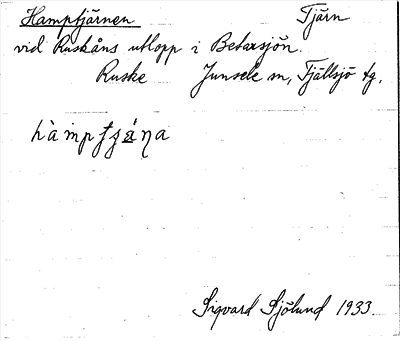 Hamptjärnen Tjärn
vid Ruskåns utlopp i Betarsjön.
Ruske Junsele sn, Fjällsjö tg.
Sigvard Sjölund 1933.